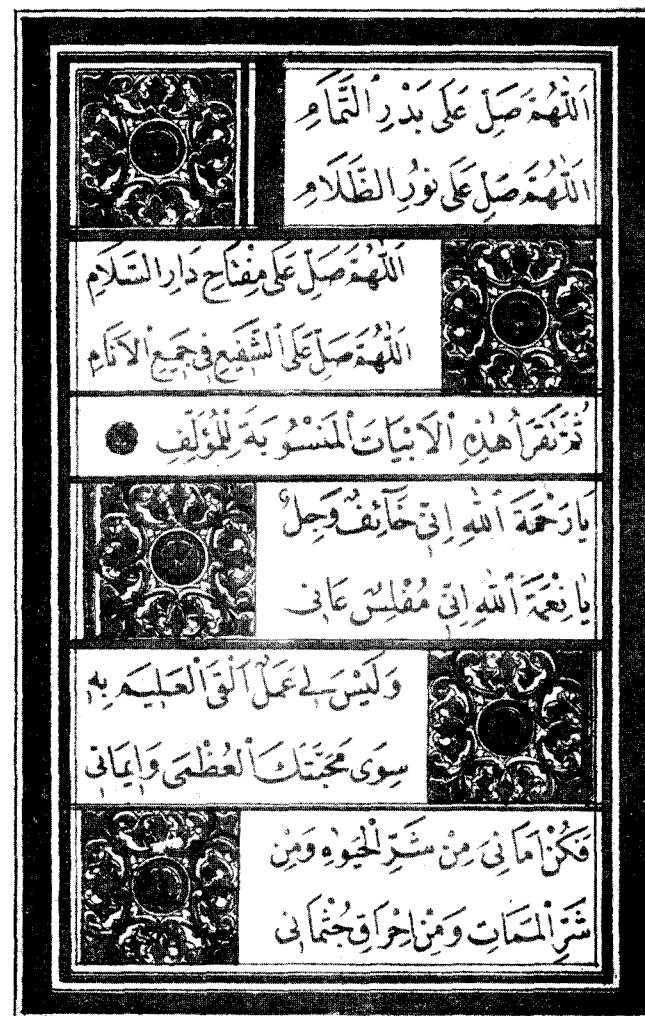 اَللّٰهُمَّ صَلِّ عَلَى بَدْرِ التَّمَامِ
اَللّٰهُمَّ صَلِّ عَلَى نُورِ الظَّلَامِ
اَللّٰهُمَّ صَلِّ عَلَى مِفْتَاحِ دَارِ السَّلَامِ
اَللّٰهُمَّ صَلِّ عَلَى الشَّفِيعِ فِي جَمِيعِ الْاَنَامِ
ثُمَّ تَقْرَأُ هٰذِهِ الْاَبْيَاتَ الْمَنْسُوبَةَ لِلْمُؤَلِّفِ
يَا رَحْمَةَ اللّٰهِ اِنِّي خَآئِفٌ وَجِلٌ
يَا نِعْمَةَ اللّٰهِ اِنِّي مُفْلِسٌ عَانِي
وَلَيْسَ لِي عَمَلٌ اَلْقَى الْعَلِيمَ بِهِ
سِوَى مَحَبَّتِكَ الْعُظْمَى وَاِيمَانِي
فَكُنْ اَمَانِيَ مِنْ شَرِّ الْحَيٰوةِ وَمِنْ
شَرِّ الْمَمَاتِ وَمِنْ اِحْرَاقِ جُثْمَانِي